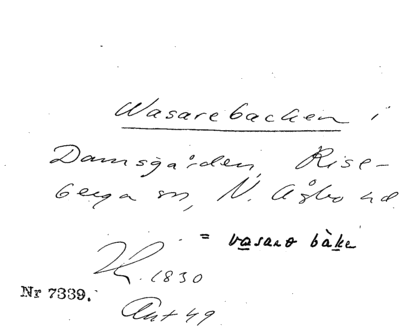 Wasarebacken i
Damsgården, Rise-
berga sn, N. Åsbo hd.
= vasarə bàkɛ
1830
Nr 7339.
Ant 49